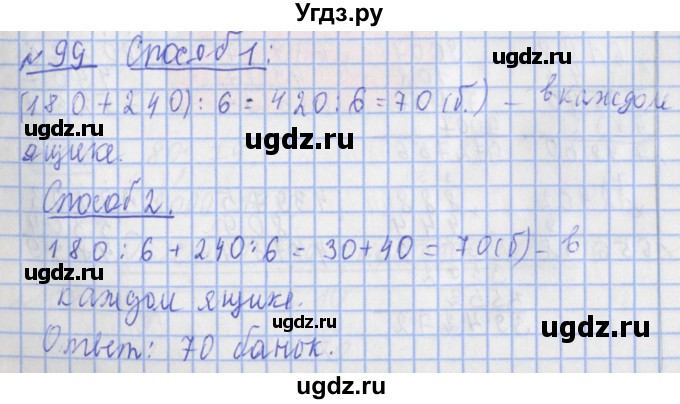 Угдз.ру
№ 99 Способ 1:
(180 + 240) : 6 = 420 : 6 = 70 (б.) – в каждом
ящике.
Способ 2.
180 : 6 + 240 : 6 = 30 + 40 = 70 (б) – в
каждом ящике.
Ответ: 70 банок.
ugdz.ru
ugdz.ru
ugdz.ru
ugdz.ru
ugdz.ru
ugdz.ru
ugdz.ru
ugdz.ru
ugdz.ru